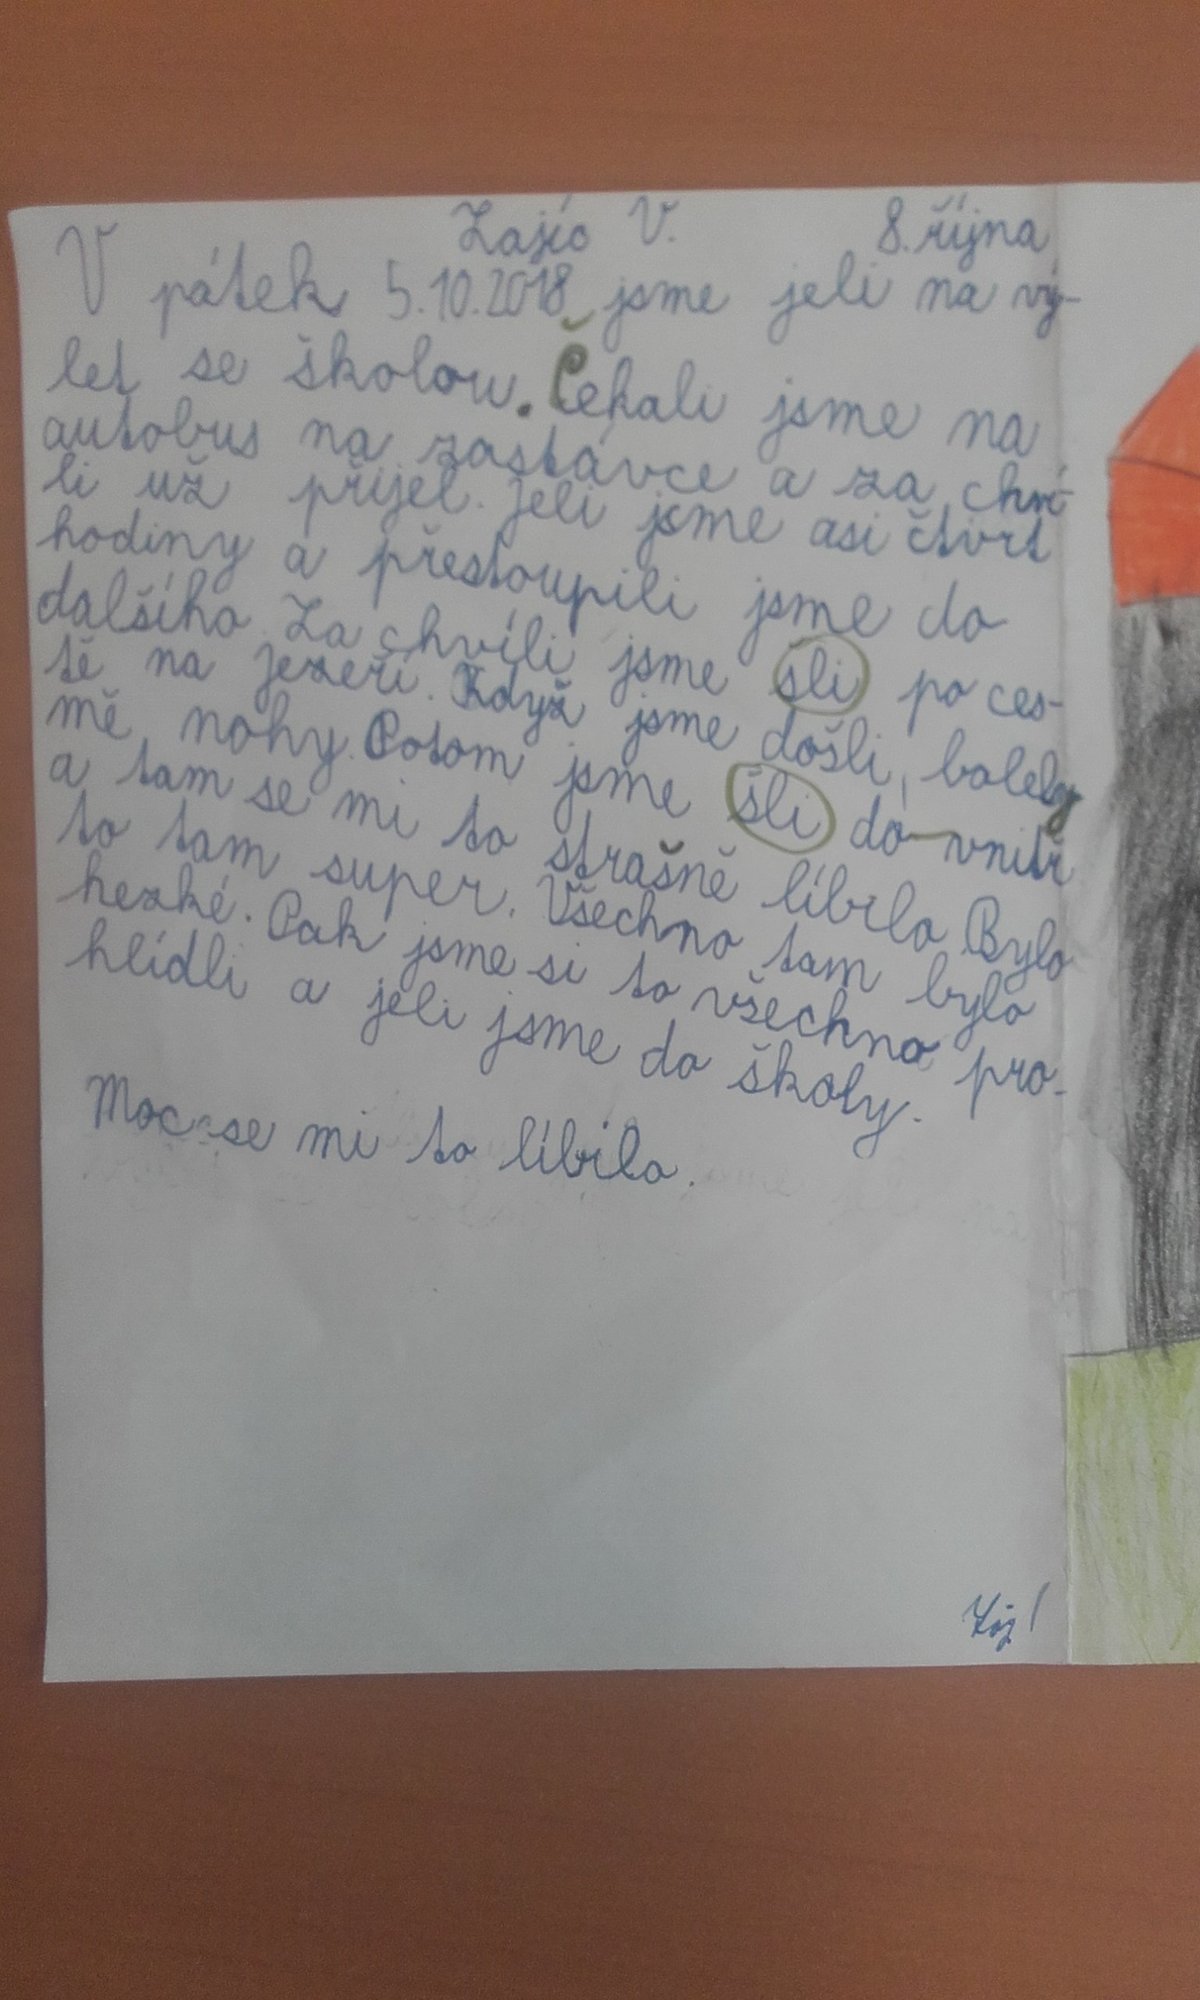 Zajíc V. 8. října
V pátek 5.10.2018 jsme jeli na vý-
let se školou. Čekali jsme na
autobus na zastávce a za chví-
li už přijel. Jeli jsme asi čtvrt
hodiny a přestoupili jsme do
dalšího. Za chvíli jsme šli po ces-
tě na Jezeří. Když jsme došli, bolely
mě nohy. Potom jsme šli do vnitř
a tam se mi to strašně líbilo. Bylo
to tam super. Všechno tam bylo
hezké. Pak jsme si to všechno pro-
hlídli a jeli jsme do školy.
Moc se mi to líbilo.